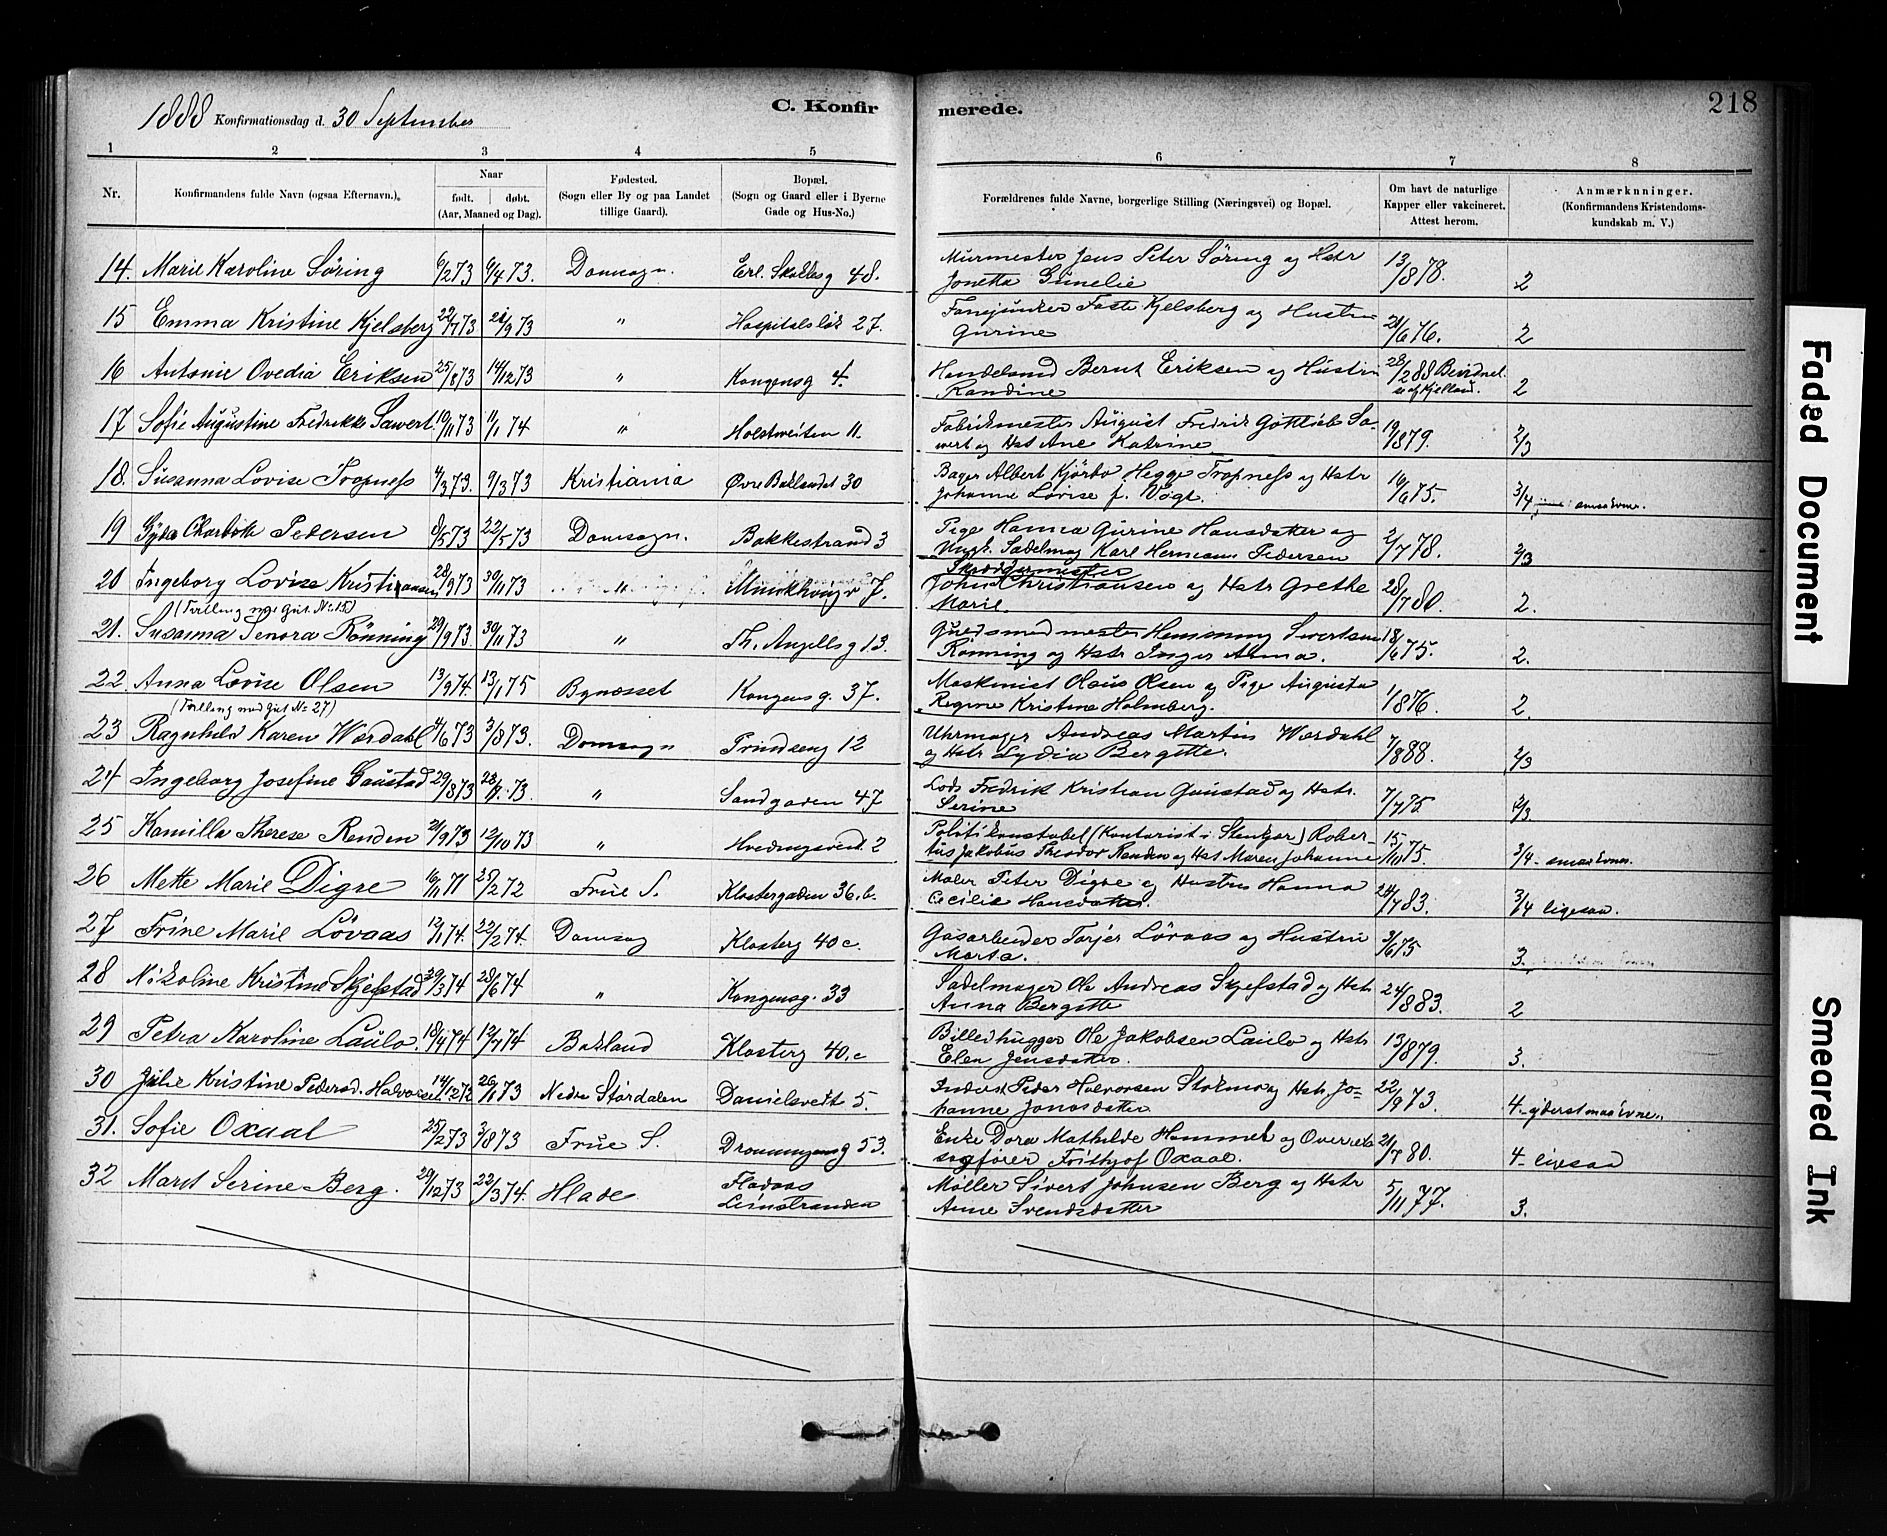 1888 Konfirmationsdag d. 30 September
C. Konfirmerede.
218
1 2 3 4 5 6 7 8
Nr. Konfirmandens fulde Navn (ogsaa Efternavn.). Naar født. døbt. (Aar, Maaned og Dag). Fødested. (Sogn eller By og paa Landet tillige Gaard). Bopæl. (Sogn og Gaard eller i Byerne Gade og Hus-No.) Forældrenes fulde Navne, borgerlige Stilling (Næringsvei) og Bopæl. Om havt de naturlige Kapper eller vakcineret. Attest herom. Anmærkninger. (Konfirmandens Kristendomskundskab m. V.)
14. Marie Karoline Söring 6/2 73 6/4 73. Domsogn. Erl. Skakkesg 48. Murmester Jens Peter Söring og Hstr
Jonetta Gunelie 13/8 78. 2
15 Emma Kristine Kjelsberg 22/7 73 21/9 73 " Hospitalsløk 27. Fanejunker Faste Kjelsberg og Hustru
Gurine 21/6 76. 2
16 Antonie Ovedia Eriksen 25/8 73 14/12 73 " Kongensg 4. Handelsmd Bernt Eriksen og Hustru
Randine 28/2 88 2
17 Sofie Augustine Fredrikke Sawert. 10/11 73 11/1 74 " Holstveiten 11. Fabrikmester August Fredrik Gottlieb Sa-
wert og Hst Ane Katrine 19/8 79. 2/3
18. Susanna Lovise Tropness 4/3 73. 9/3 73 Kristiania Øvre Baklandet 30 Bager Albert Kjörbo Hegge Tropness og Hstr
Johanne Lovise f. Vogt. 16/6 75. 3/4
19 Gyda Charlotte Pedersen 8/5 73 22/5 73 Domsogn. Bakkestrand 3 Pige Hanna Gurine Hansdatter og
Ungk. Sadelmag Karl Hermann Pedersen 2/7 78. 2/3
20 Ingeborg Lovise Kristiansen 28/9 73 30/11 73 " Munkhaugv 7. Skræddermester
John Christiansen og Hstr Grethe
Marie. 28/7 80. 2.
(Tvilling med Gut. No 15)
21. Susanna Senora Rönning 29/9 73. 30/11 73 " Th. Angellsg 13. Guldsmedmester Hemming Sivertsen
Rönning og Hstr Inger Anna. 18/6 75. 2.
22 Anna Lovise Olsen 13/9 74. 13/1 75 Bynesset Kongensg. 37. Maskinist Olaus Olsen og Pige Augusta
Regine Kristine Holmberg. 1/8 76. 2.
(Tvilling med Gut No 27)
23 Ragnhild Karen Wærdahl 4/6 73 3/8 73. Domsogn Trondseng 12 Uhrmager Andreas Martin Wærdahl
og Hstr Lydia Bergitte. 7/8 88. 2/3
24 Ingeborg Josefine Gaustad 29/8 73 28/9. 73. " Sandgaden 47 Lods Fredrik Kristian Gaustad og Hstr.
Serine 7/7 75. 2/3
25 Kamilla Therese Renden 2/9 73 12/10 73 " Hvedingsveit. 2 Politikonstabel (Kontorist i Stenkjær) Rober-
tus Jakobus Theodor Renden og Hst Maren Johanne 15/11 75. 3/4 - smaa Evner.
26 Mette Marie Digre 16/11 71 25/2 72 Frue S. Klostergaden 36. b. Maler Peter Digre og Hustru Hanna
Cecilie Hansdatter. 24/7 83. 3/4 ligesaa.
27 Trine Marie Lövaas 12/1 74. 22/2 74. Domsog Klosterg 40 c. Gasarbeider Torjer Lövaas og Hustru
Marta. 3/6 75 3.
28 Nikoline Kristine Skjefstad 29/3 74 28/6 74 " Kongensg. 33 Sadelmager Ole Andreas Skjefstad og Hstr
Anna Bergitte 24/8 83. 2
29 Petra Karoline Laulo. 18/4 74 12/7 74 Bakland Klosterg 40. c Billedhugger Ole Jakobsen Laulo og Hstr
Elen Jensdatter. 13/8 79. 3.
30 Julie Kristine Pedersd. Halvorsen 14/12 72 26/1 73 Nedre Stördalen Danielsveit 5. Inderst Peder Halvorsen Stokmo og Hstr. Jo-
hanne Jonasdatter 22/9 73. 4 - yderst smaa Evne.
31. Sofie Oxaal 25/2 73 3/8 73 Frue S. Dronningensg 53. Enke Dora Mathilde Hammel og Overrets-
sagfører Frithjof Oxaal. 21/7 80. 4 - ligesaa
32 Maret Serine Berg. 29/12 73 22/3 74. Hlade Flataas
Leinstranden Møller Sivert Johnsen Berg og Hstr
Anne Svendsdatter 5/11 77. 3.
Faded Document
Smeared Ink